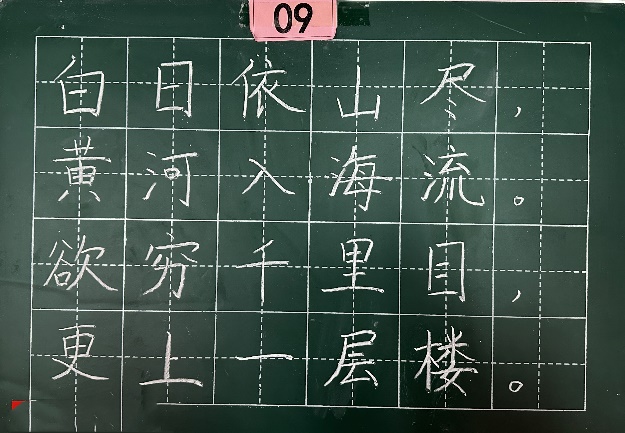 09
白日依山尽，
黄河入海流。
欲穷千里目，
更上一层楼。